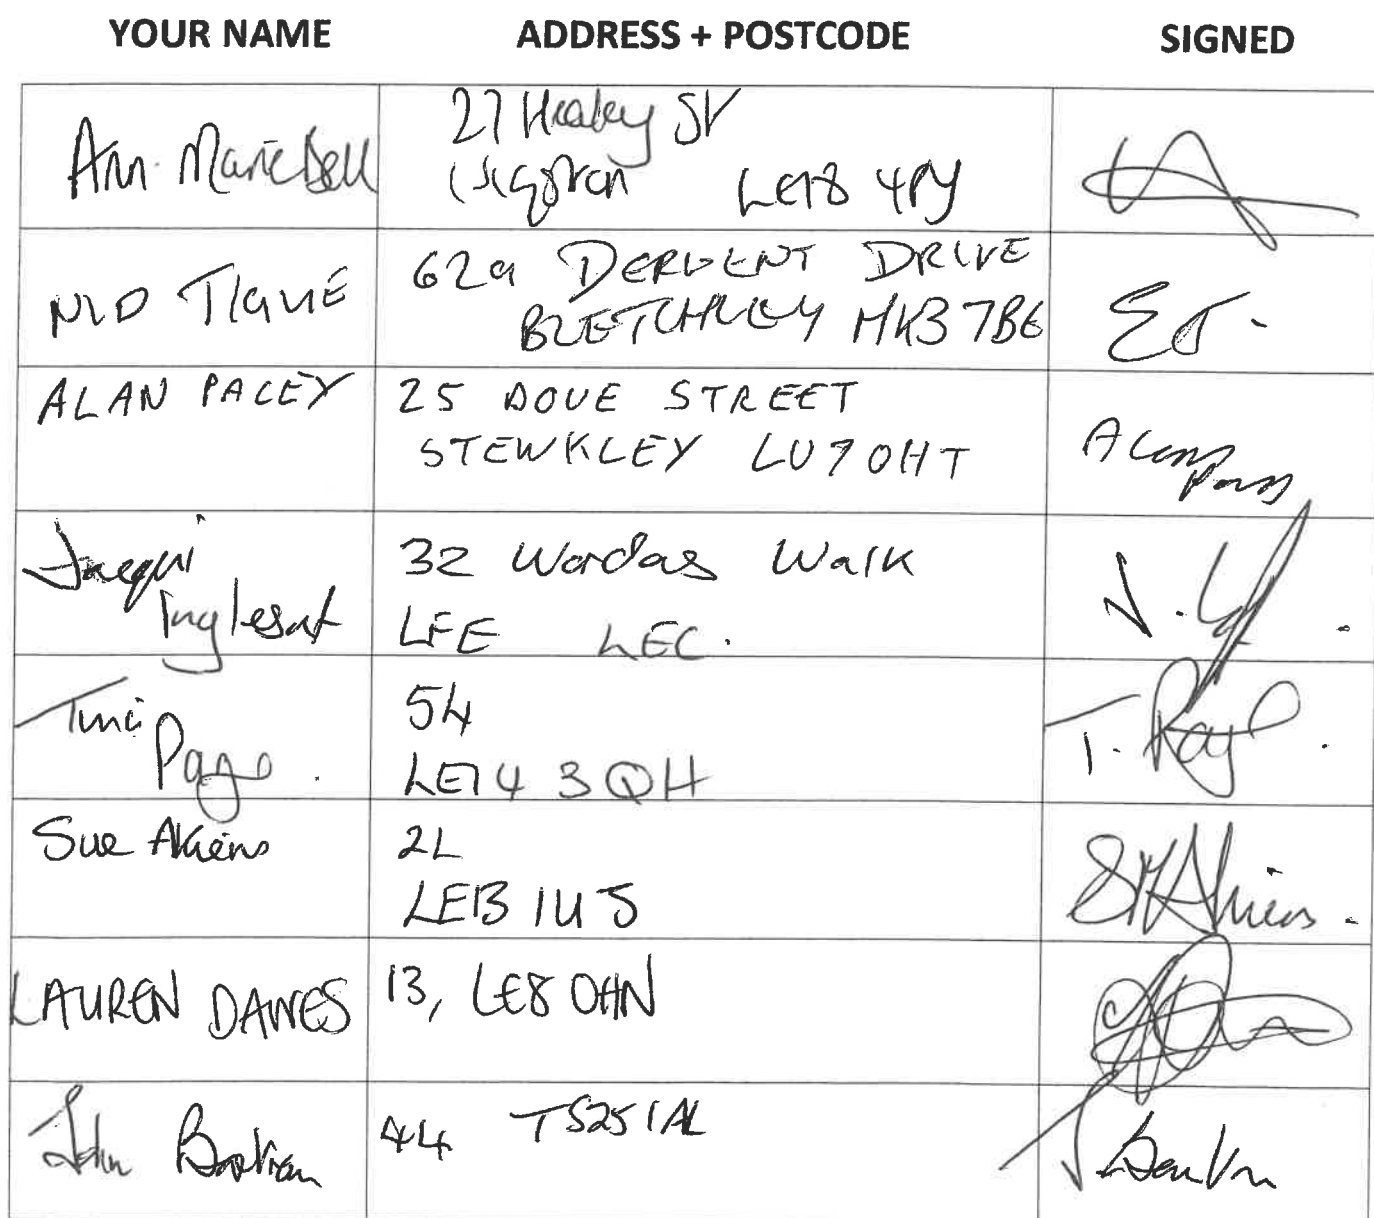 YOUR NAME ADDRESS + POSTCODE SIGNED
Ann Marie Bell
27 Healey St
Wigston LE18 4PY
TIGUE
62a DERWENT DRIVE
BLETCHLEY MK3 7BE
ALAN PACEY
25 DOVE STREET
STEWKLEY LU7 0HT
Alan
Jacqui
Inglesant
32 Wordas Walk
LFE LEC.
J.
Tina
Page.
54
LE14 3QH
T. Page.
Sue Akiens
2L
LE13 1US
SMAkiens.
LAUREN DAWES
13, LE8 0HN
John
44 TS25 1AL
J